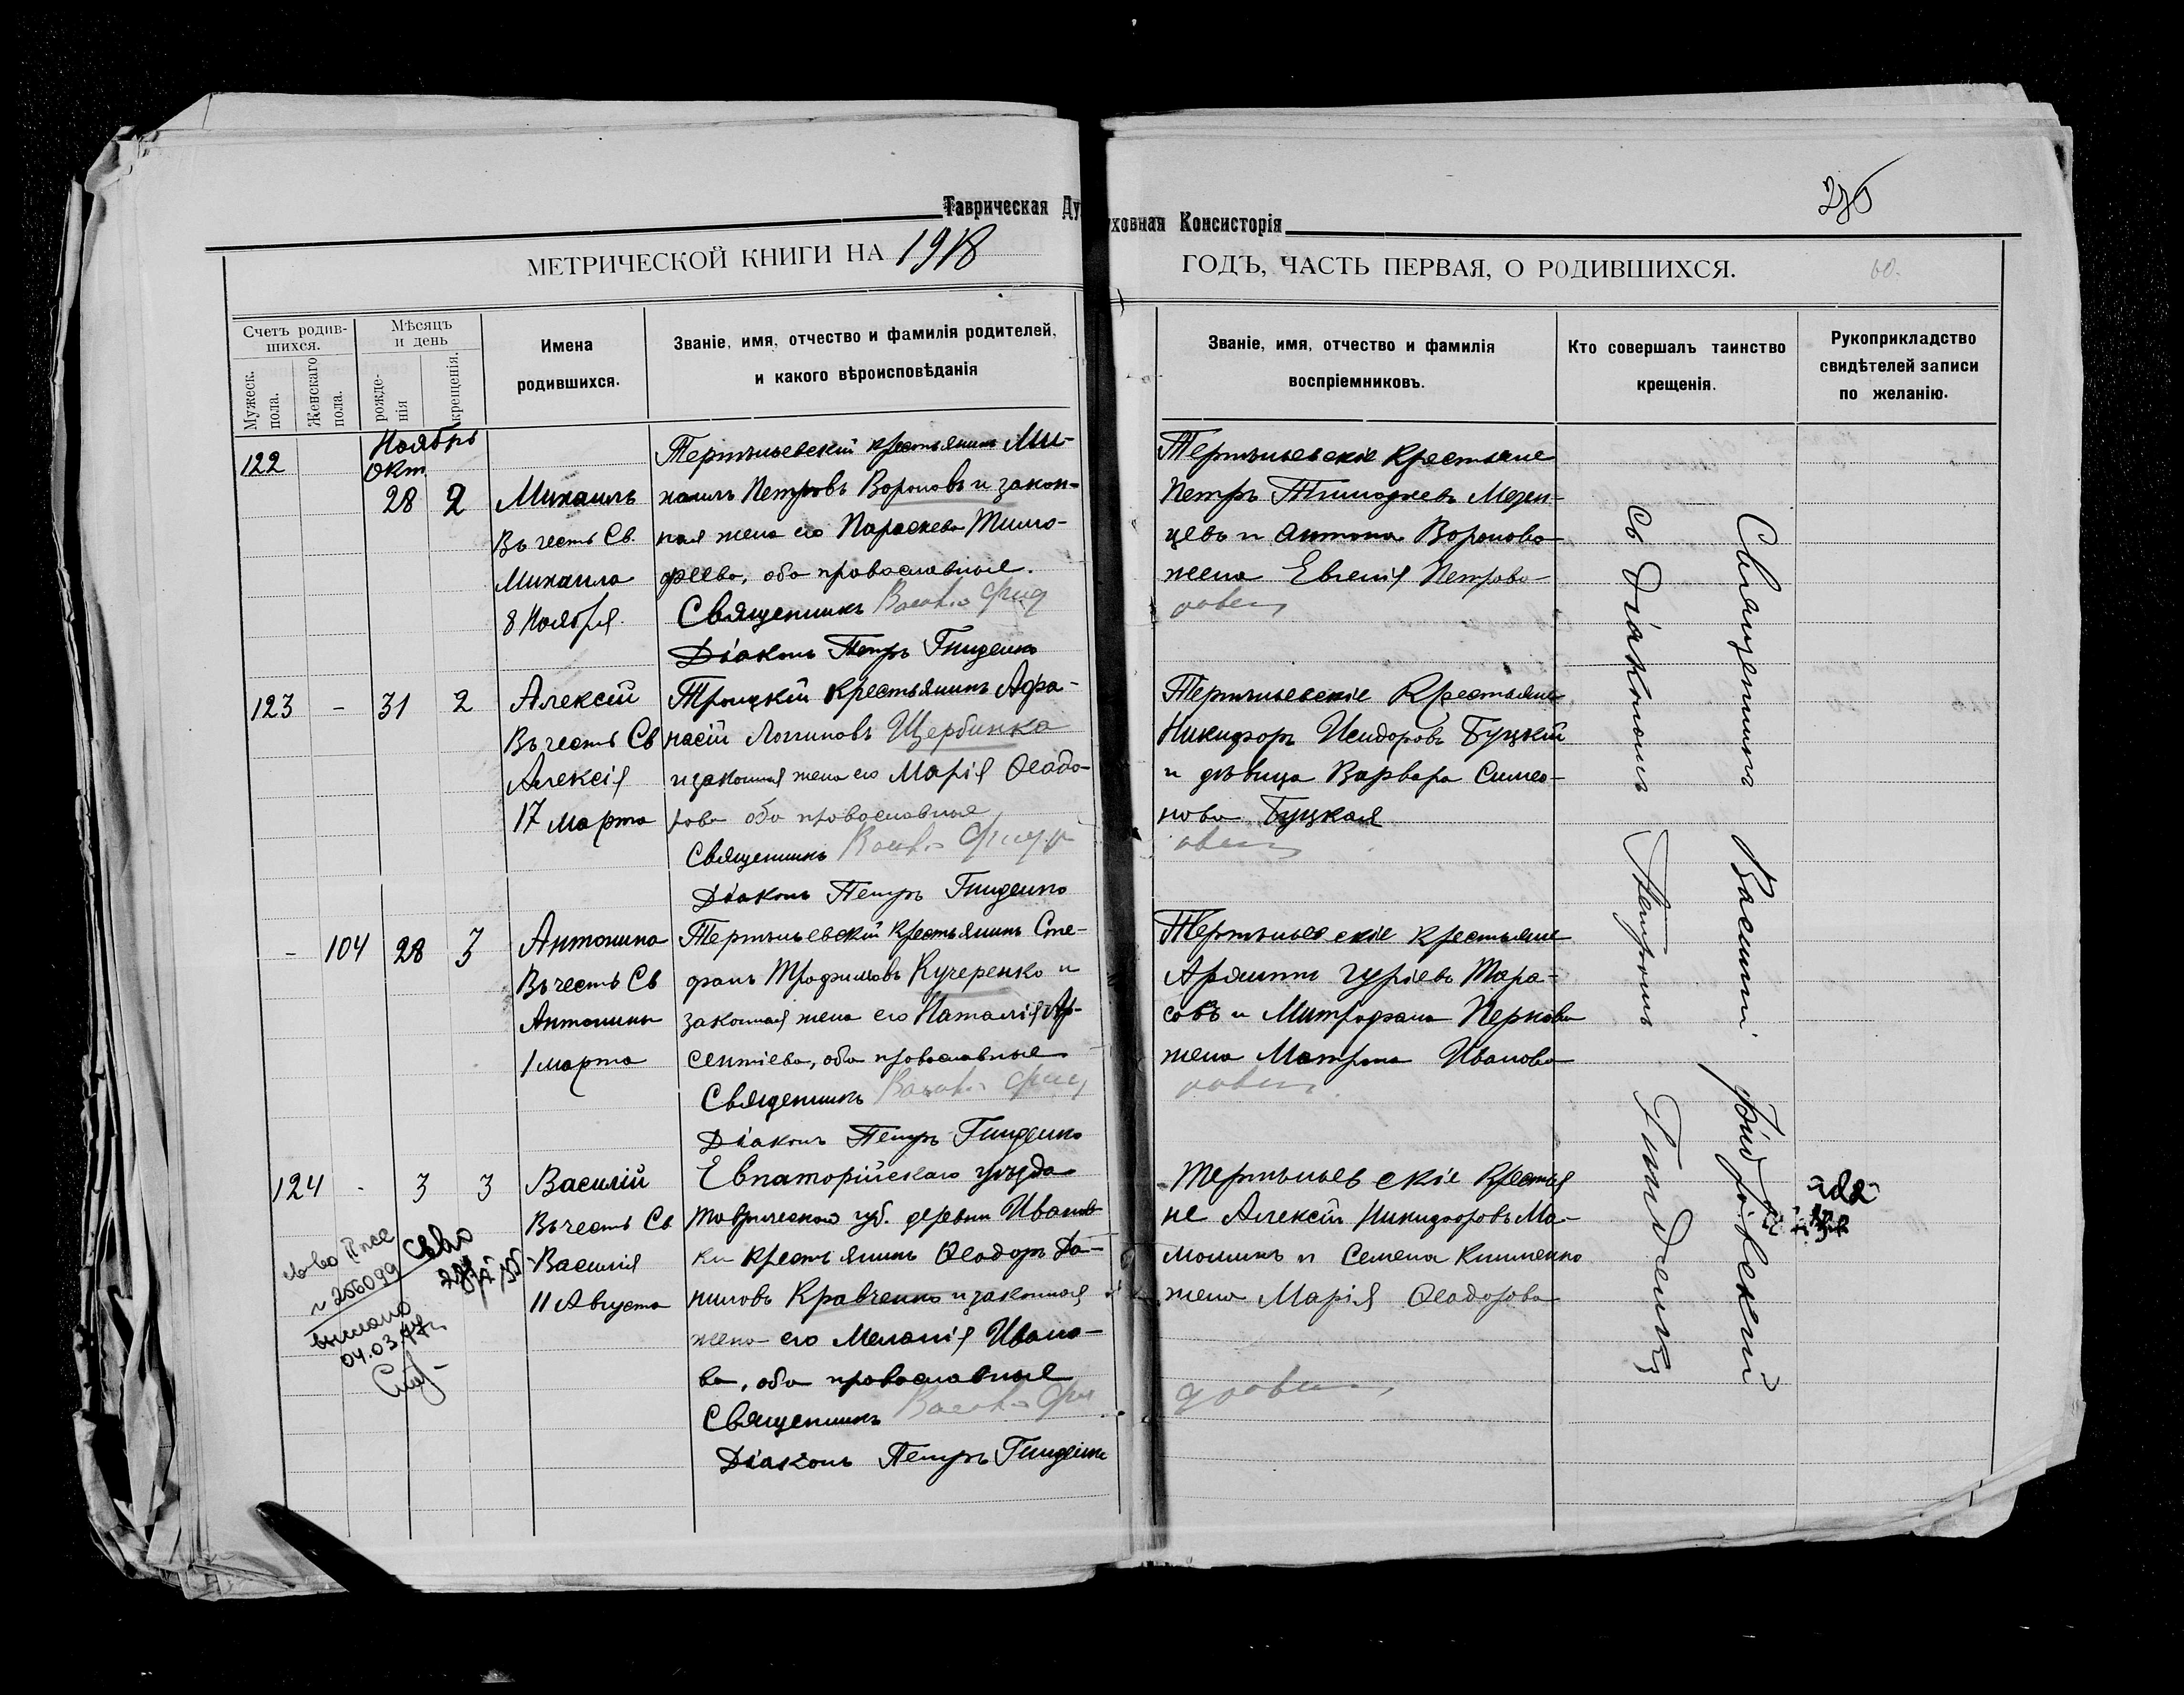 Таврическая Духовная Консисторія
МЕТРИЧЕСКОЙ КНИГИ НА 1918 ГОДЪ, ЧАСТЬ ПЕРВАЯ, О РОДИВШИХСЯ.
60.
Счетъ родив-
шихся.
Мужеск.
пола.
Женскаго
пола.
Мѣсяцъ
и день
рожде-
нія
крещенія.
Имена
родившихся.
Званіе, имя, отчество и фамилія родителей,
и какого вѣроисповѣданія
Званіе, имя, отчество и фамилія
воспріемниковъ.
Кто совершалъ таинство
крещенія.
Рукоприкладство
свидѣтелей записи
по желанію.
Ноябрь
122
Окт.
28 2
Михаилъ
Въ честь Св.
Михаила
8 Ноября.
Тертыневскій крестьянинъ Ми-
хаилъ Петровъ Вороновъ и закон-
ная жена его Параскева Тимо-
феева, оба православные.
Священникъ
Діаконъ Петръ Гниденко
Тертыневскіе Крестьяне
Петръ Тимофеевъ Мезен-
цевъ и Антона Воронова
жена Евгенія Петрова
123 - 31 2
Алексій
Въ честь Св
Алексія
17 марта
Троицкій крестьянинъ Афа-
насій Логиновъ Щербинка
и законная жена его Марія Ѳеодо-
рова оба православные
Священникъ
Діаконъ Петръ Гниденко
Тертыневскіе Крестьяне
Никифоръ Исидоровъ Буцкій
и дѣвица Варвара Симео-
нова Буцкая
- 104 28 3
Антонина
Въ честь Св
Антонины
1 марта
Тертыневскій крестьянинъ Сте-
фанъ Трофимовъ Кучеренко и
законная жена его Наталія Ар-
сентіева, оба православные
Священникъ
Діаконъ Петръ Гниденко
Тертыневскіе крестьяне
Гуріевъ Тара-
совъ и Митрофана Перкова
жена Матрона Иванова
124 - 3 3
Василій
Въ честь Св
Василія
11 Августа
Евпаторійскаго уѣзда
Таврической губ. деревни Иванов-
ки крестьянинъ Ѳеодоръ Да-
ниловъ Кравченко и законная
жена его Меланія Ивано-
ва, оба православные
Священникъ
Діаконъ Петръ Гниденко
Тертыневскіе Крестья
не Алексій Никифоровъ Ма-
мошинъ и Семена Клименко
жена Марія Ѳеодорова
№ 256099
выслано
04.03.77г.
Священникъ Василій Фидровскій
съ Діакономъ Петромъ Гниденко